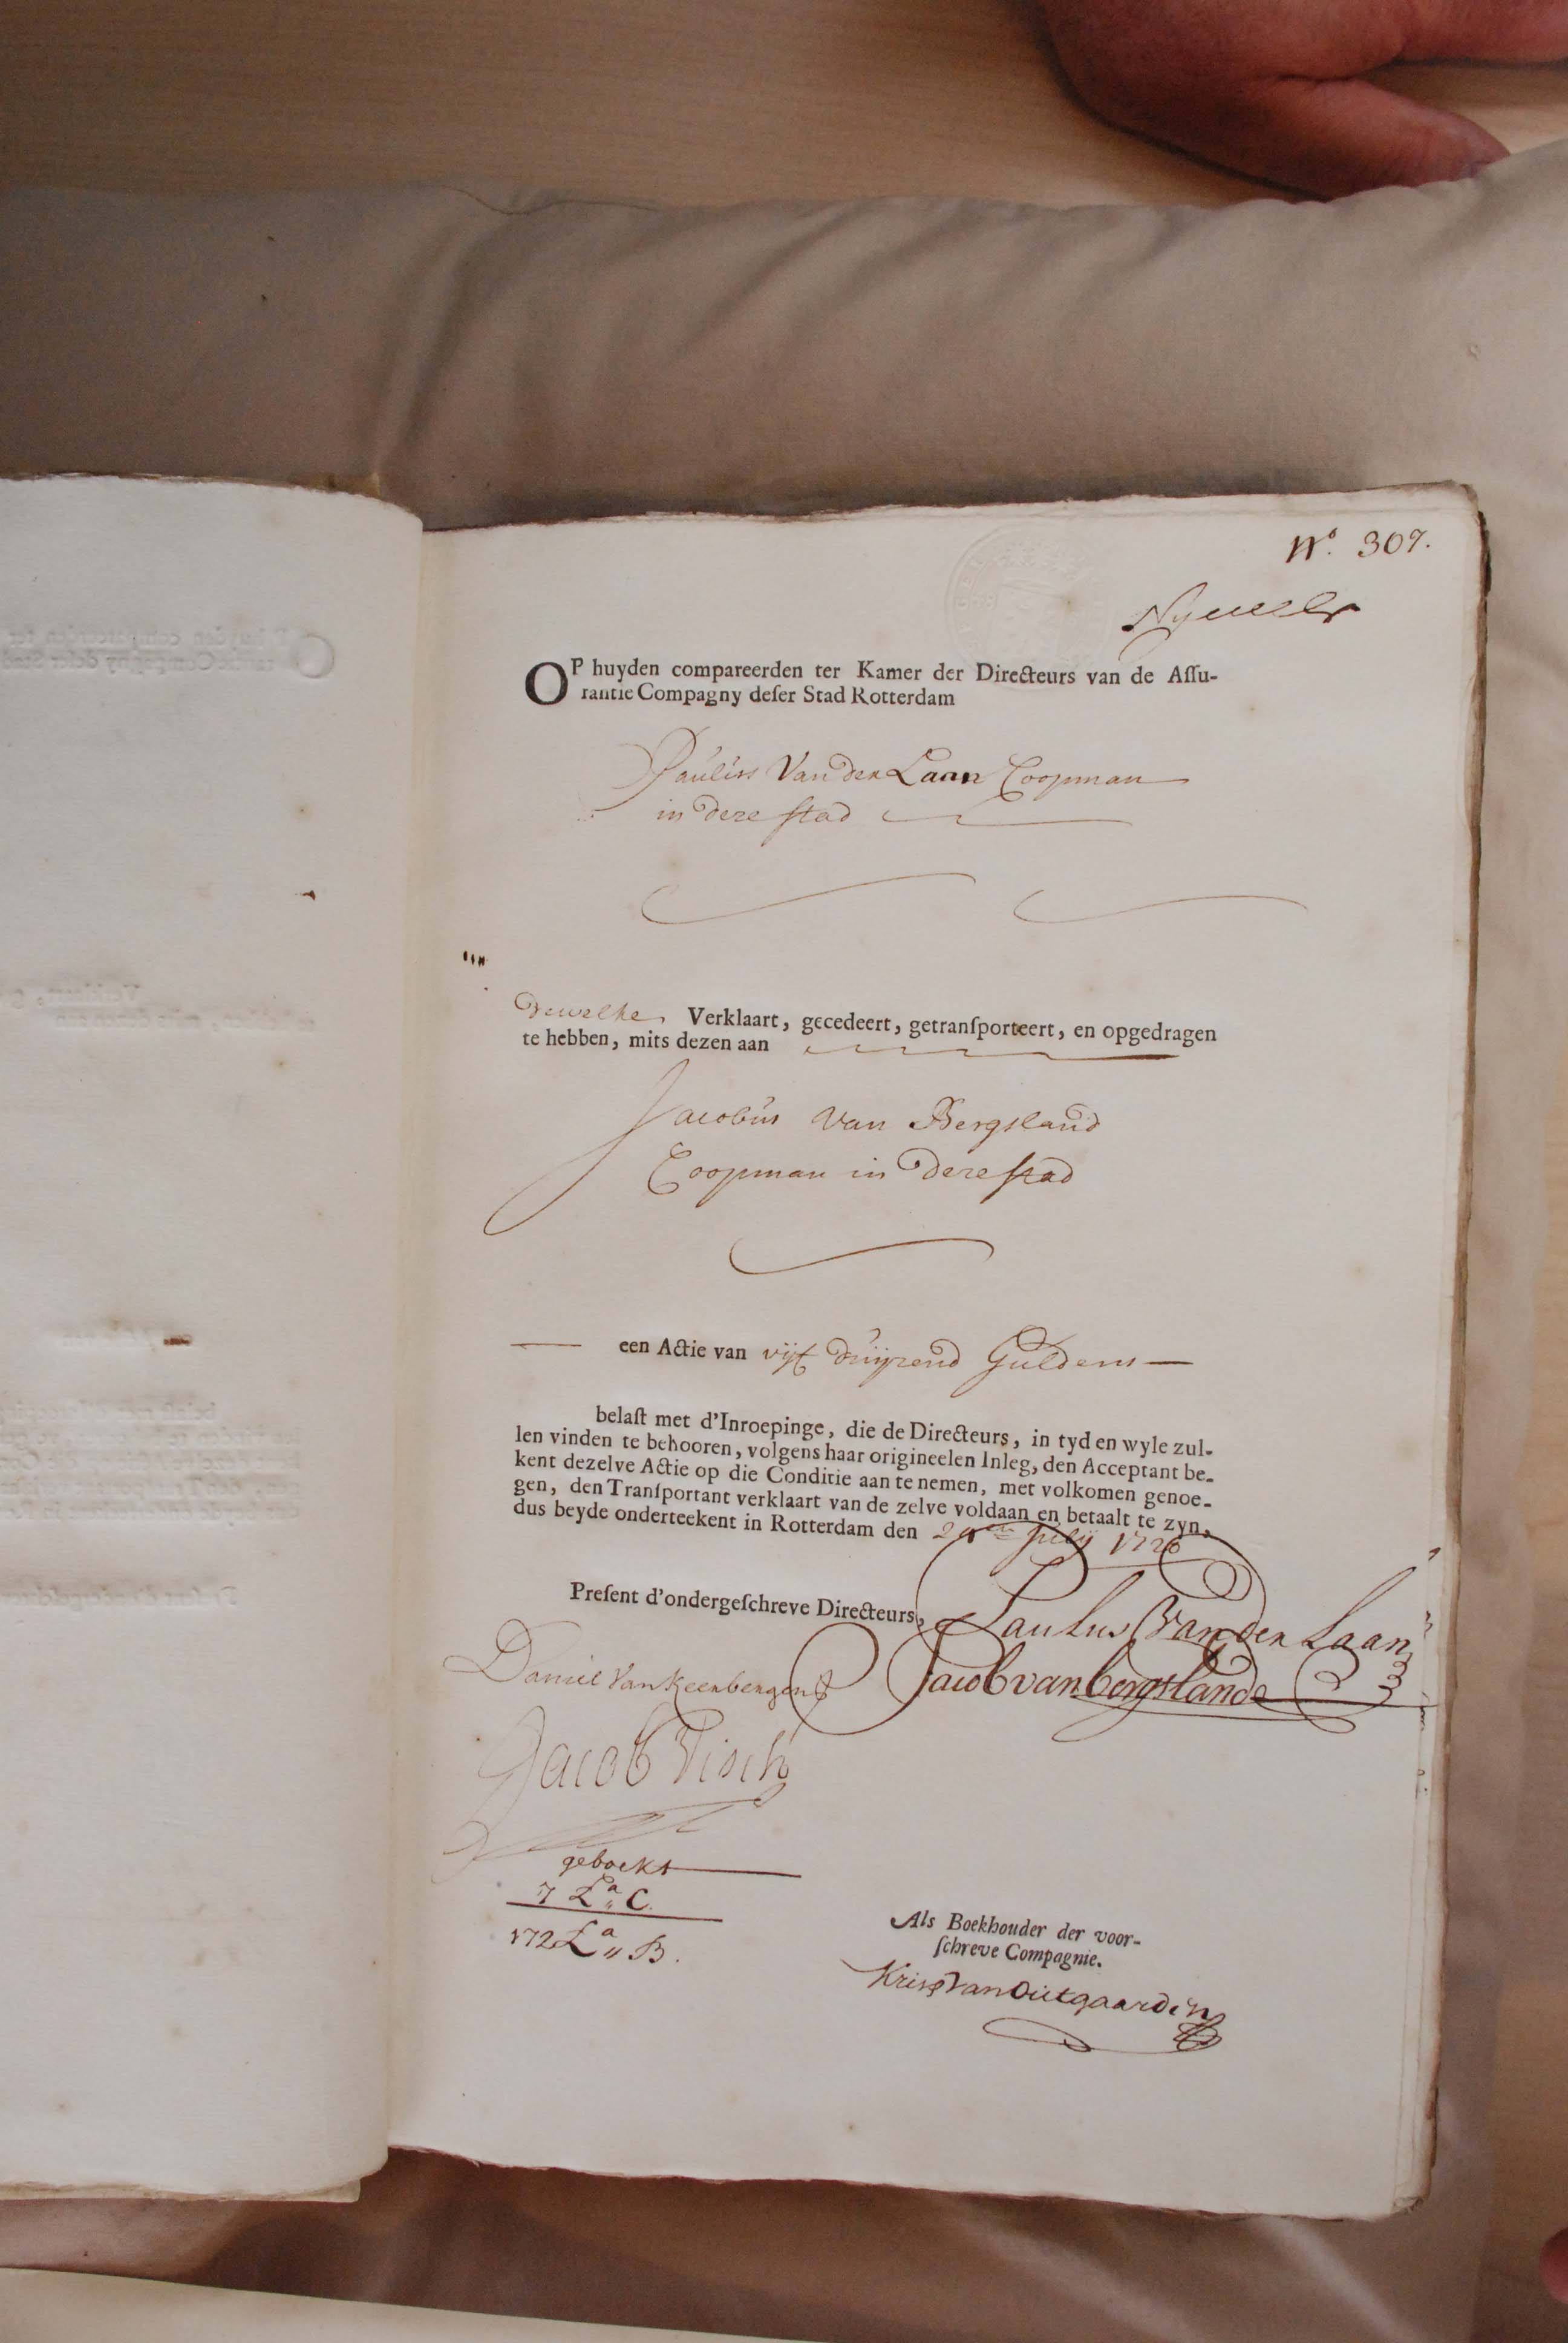 N.º 307.
OP huyden compareerden ter Kamer der Directeurs van de Aſſu-
rantie Compagny deſer Stad Rotterdam
Paulus Van der Laan Coopman
in deze ſtad
dewelke Verklaart, gecedeert, getranſporteert, en opgedragen
te hebben, mits dezen aan
Jacobus van Bergsland
Coopman in deze ſtad
een Actie van vijf duijzend Guldens
belaſt met d'Inroepinge, die de Directeurs, in tyd en wyle zul-
len vinden te behooren, volgens haar origineelen Inleg, den Acceptant be-
kent dezelve Actie op die Conditie aan te nemen, met volkomen genoe-
gen, den Tranſportant verklaart van de zelve voldaan en betaalt te zyn,
dus beyde onderteekent in Rotterdam den July 1720
Preſent d'ondergeſchreve Directeurs,
Paulus Van der Laan
Daniel Van Keerbergen
Jacob van bergslande
Jacob Visch
geboekt
7 L.ª C.
172 L.ª B.
Als Boekhouder der voor-
ſchreve Compagnie.
Krisp Van Outgaarden